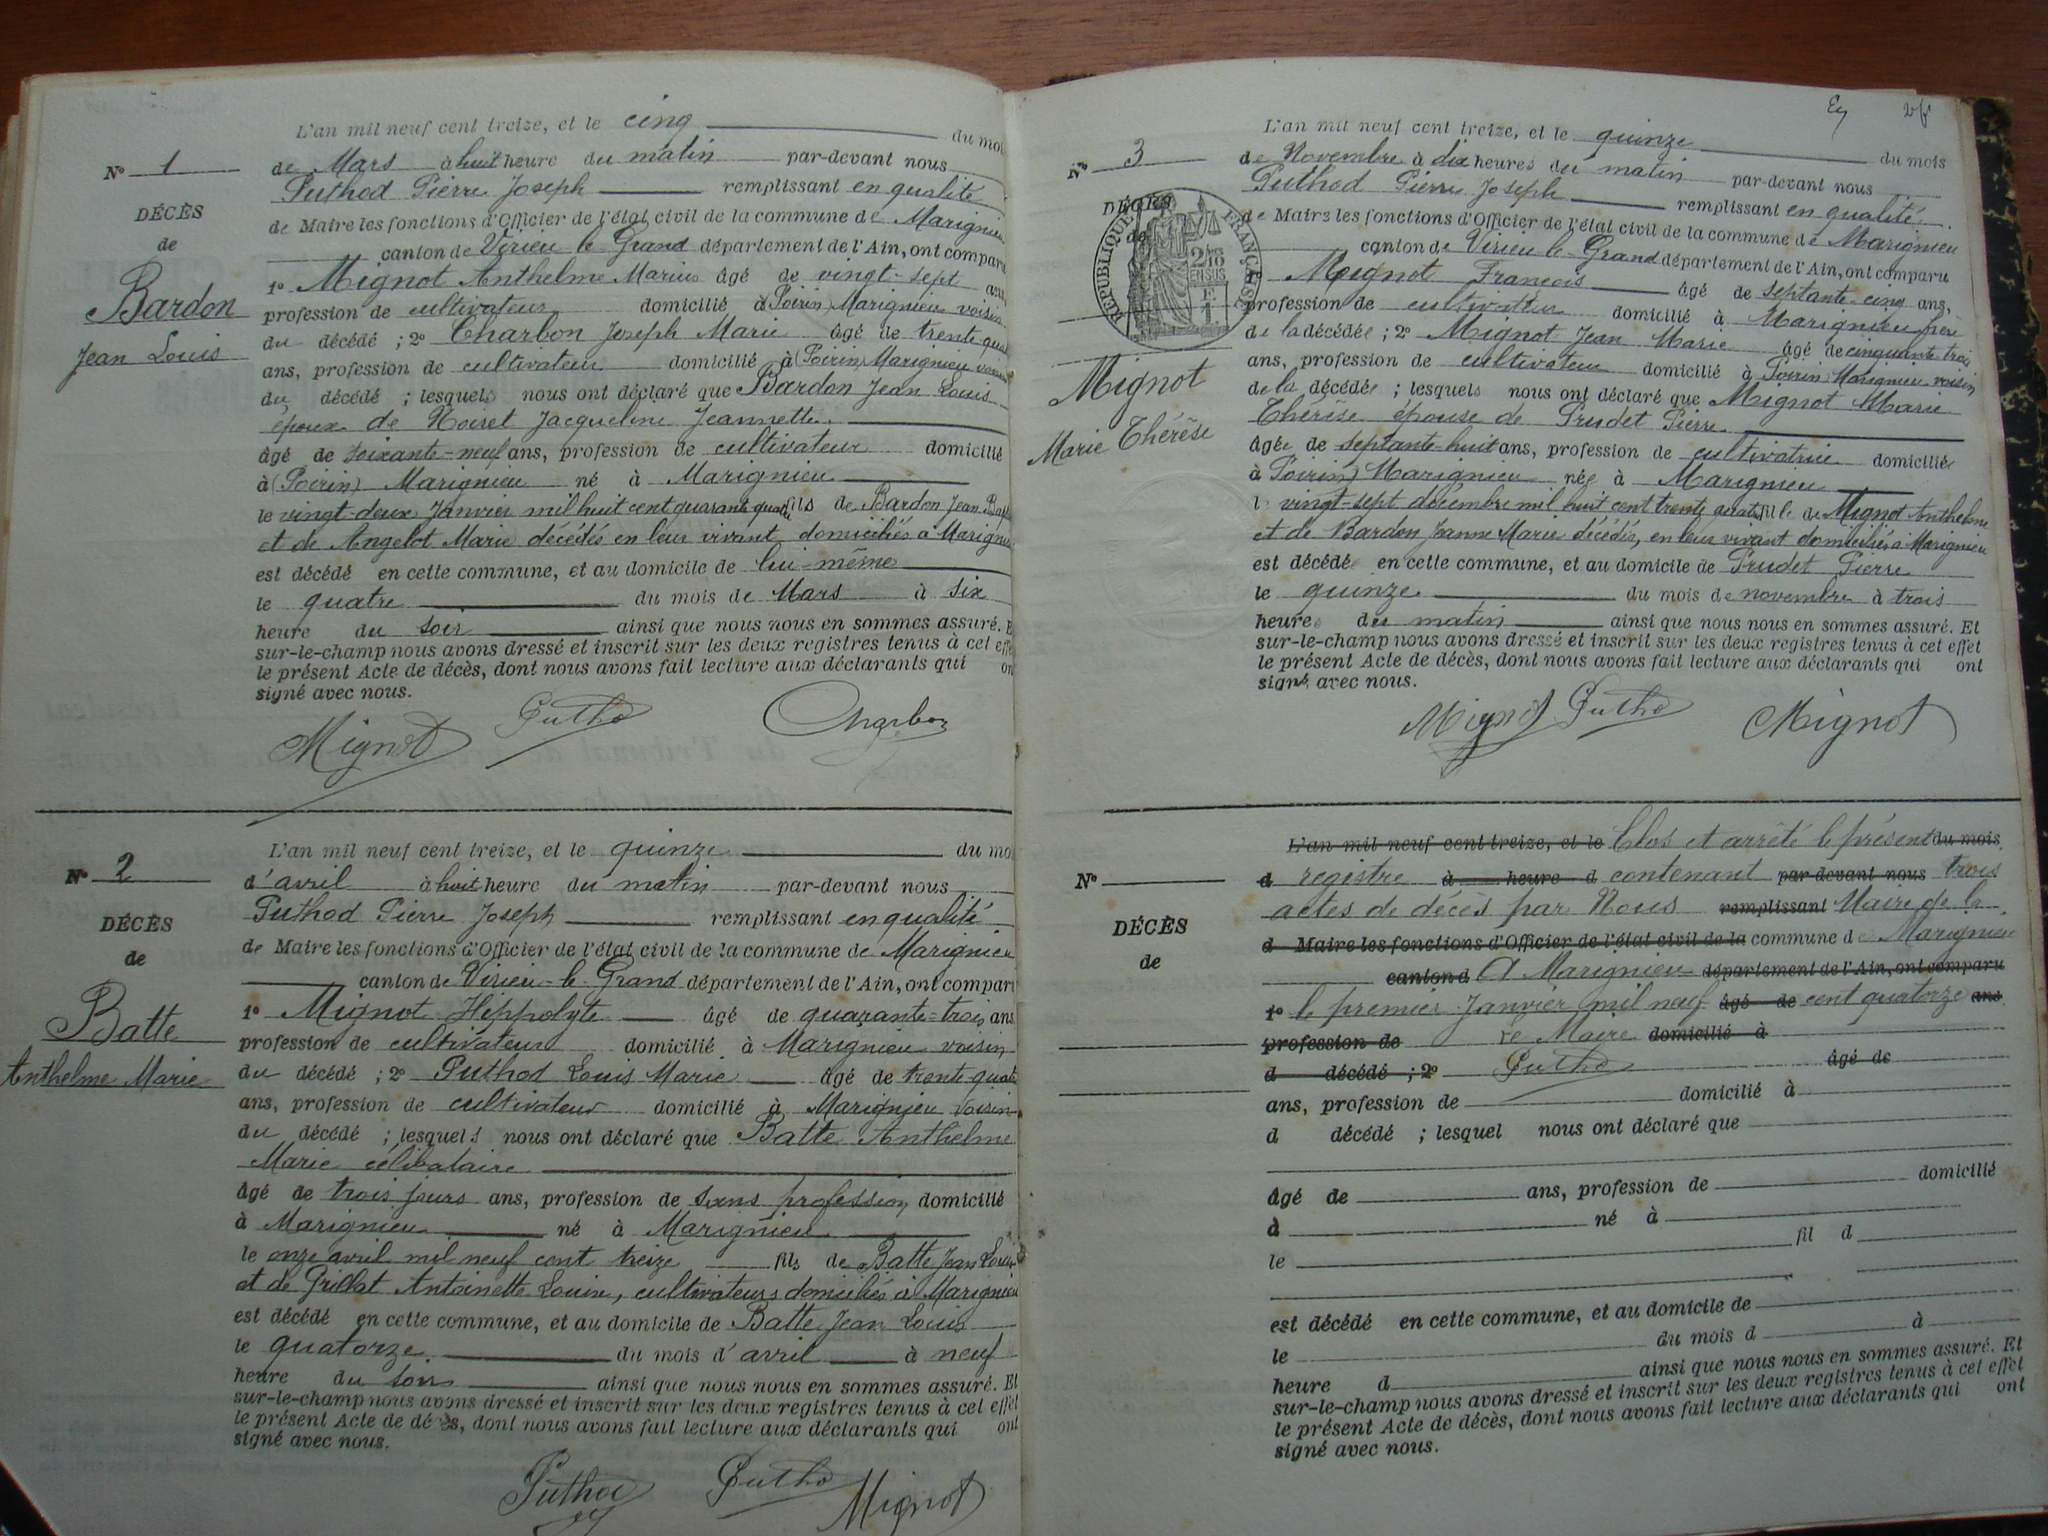 L'an mil neuf cent treize, et le cinq du mois
N° 1
de Mars à huit heure du matin par-devant nous
Puthod Pierre Joseph remplissant en qualité
DÉCÈS
de Maire les fonctions d'Officier de l'état civil de la commune de Marignieu
de
canton de Virieu le Grand département de l'Ain, ont comparu
1° Mignot Anthelme Marius âgé de vingt-sept ans,
Bardon
profession de cultivateur domicilié à (Poirin) Marignieu voisin
du décédé ; 2° Charbon Joseph Marie âgé de trente quatre
Jean Louis
ans, profession de cultivateur domicilié à (Poirin) Marignieu voisin
du décédé ; lesquels nous ont déclaré que Bardon Jean Louis
époux de Noiret Jacqueline Jeannette
âgé de soixante-neuf ans, profession de cultivateur domicilié
à (Poirin) Marignieu né à Marignieu
le vingt-deux Janvier mil huit cent quarante quatre fils de Bardon Jean Bapt
et de Angelot Marie décédés en leur vivant domiciliés à Marignieu
est décédé en cette commune, et au domicile de lui-même
le quatre du mois de Mars à six
heure du soir ainsi que nous nous en sommes assuré. Et
sur-le-champ nous avons dressé et inscrit sur les deux registres tenus à cet effet
le présent Acte de décès, dont nous avons fait lecture aux déclarants qui ont
signé avec nous.
Mignot Putho Charbon
L'an mil neuf cent treize, et le quinze du mois
N° 2
d'avril à huit heure du matin par-devant nous
Puthod Pierre Joseph remplissant en qualité
DÉCÈS
de Maire les fonctions d'Officier de l'état civil de la commune de Marignieu
de
canton de Virieu-le Grand département de l'Ain, ont comparu
1° Mignot Hippolyte âgé de quarante-trois ans
Batte
profession de cultivateur domicilié à Marignieu voisin
Anthelme Marie
du décédé ; 2° Puthod Louis Marie âgé de trente quatre
ans, profession de cultivateur domicilié à Marignieu voisin
du décédé ; lesquels nous ont déclaré que Batte Anthelme
Marie célibataire
âgé de trois jours ans, profession de sans profession domicilié
à Marignieu né à Marignieu
le onze avril mil neuf cent treize fils de Batte Jean Louis
et de Grillat Antoinette Louise, cultivateurs domiciliés à Marignieu
est décédé en cette commune, et au domicile de Batte Jean Louis
le quatorze du mois d'avril à neuf
heure du soir ainsi que nous nous en sommes assuré. Et
sur-le-champ nous avons dressé et inscrit sur les deux registres tenus à cet effet
le présent Acte de décès, dont nous avons fait lecture aux déclarants qui ont
signé avec nous.
Puthod Putho Mignot
L'an mil neuf cent treize, et le quinze du mois
N° 3
de Novembre à dix heures du matin par-devant nous
Puthod Pierre Joseph remplissant en qualité
DÉCÈS
de Maire les fonctions d'Officier de l'état civil de la commune de Marignieu
de
RÉPUBLIQUE FRANÇAISE
canton de Virieu le Grand département de l'Ain, ont comparu
Mignot François âgé de septante-cinq ans,
profession de cultivateur domicilié à Marignieu frère
de la décédée ; 2° Mignot Jean Marie âgé de cinquante trois
Mignot
ans, profession de cultivateur domicilié à Poirin Marignieu voisin
de la décédée ; lesquels nous ont déclaré que Mignot Marie
Marie Thérèse
Thérèse épouse de Prudet Pierre
âgée de septante-huit ans, profession de cultivatrice domiciliée
à (Poirin) Marignieu née à Marignieu
le vingt-sept décembre mil huit cent trente quatre fille de Mignot Anthelme
et de Bardon Jeanne Marie décédés, en leur vivant domiciliés à Marignieu
est décédée en cette commune, et au domicile de Prudet Pierre
le quinze du mois de novembre à trois
heures du matin ainsi que nous nous en sommes assuré. Et
sur-le-champ nous avons dressé et inscrit sur les deux registres tenus à cet effet
le présent Acte de décès, dont nous avons fait lecture aux déclarants qui ont
signé avec nous.
Mignot Putho Mignot
L'an mil neuf cent treize, et le Clos et arrêté le présent du mois
N°
d registre à heure d contenant par-devant nous trois
actes de décès par Nous remplissant Maire de la
DÉCÈS
d Maire les fonctions d'Officier de l'état civil de la commune de Marignieu
de
canton d A Marignieu département de l'Ain, ont comparu
1° le premier Janvier mil neuf âgé de cent quatorze ans
profession de Le Maire domicilié à
d décédé ; 2° Putho âgé de
ans, profession de domicilié à
d décédé ; lesquel nous ont déclaré que
âgé de ans, profession de domicilié
à né à
le fil d
est décédé en cette commune, et au domicile de
le du mois d à
heure d ainsi que nous nous en sommes assuré. Et
sur-le-champ nous avons dressé et inscrit sur les deux registres tenus à cet effet
le présent Acte de décès, dont nous avons fait lecture aux déclarants qui ont
signé avec nous.